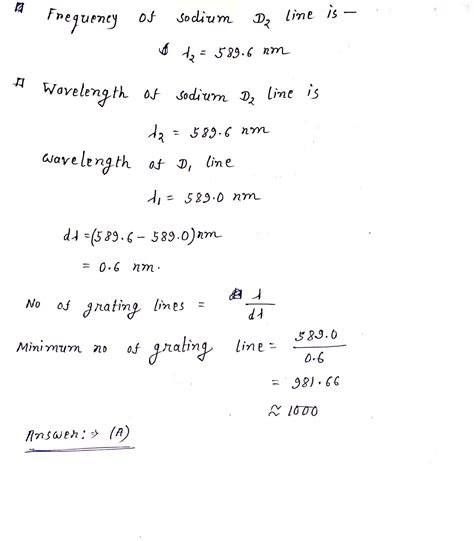 Frequency of sodium D₂ line is —
λ₂ = 589.6 nm
Wavelength of sodium D₂ line is
λ₂ = 589.6 nm
Wavelength of D₁ line
λ₁ = 589.0 nm
dλ = (589.6 - 589.0) nm
= 0.6 nm.
No of grating lines = λ/dλ
Minimum no of grating line = 589.0/0.6
= 981.66
≈ 1000
Answer:→ (A)